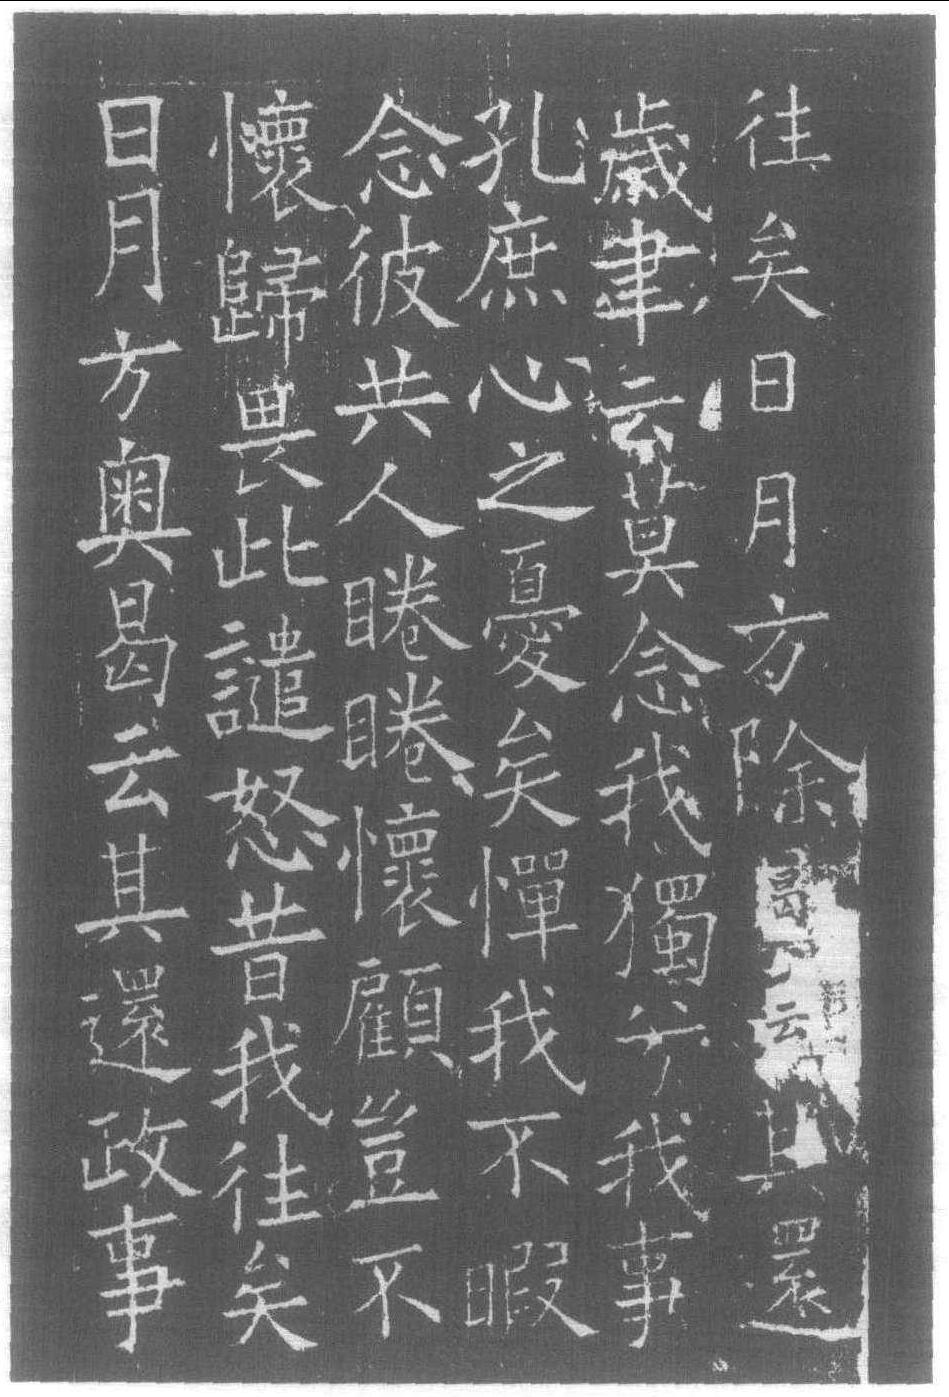 往矣日月方除曷云其還
歲聿云莫念我獨兮我事
孔庶心之憂矣憚我不暇
念彼共人睠睠懷顧豈不
懷歸畏此譴怒昔我往矣
日月方奧曷云其還政事